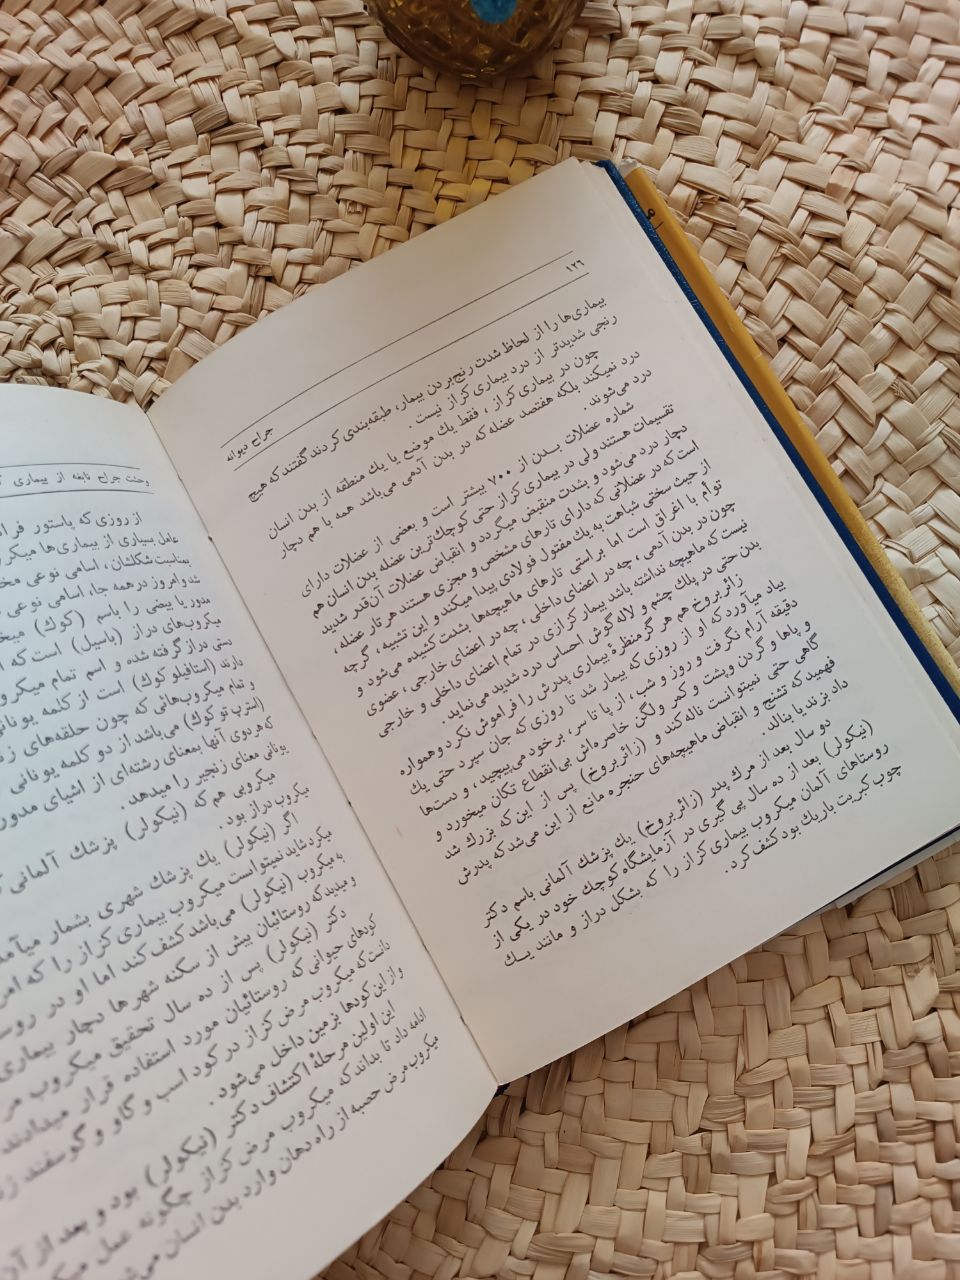 ۱۲۶
جراح دیوانه
بیماری‌ها را از لحاظ شدت رنج‌بردن بیمار، طبقه‌بندی کردند گفتند که هیچ
رنجی شدیدتر از درد بیماری کزاز نیست .
چون در بیماری کزاز ، فقط یك موضع یا یك منطقه از بدن انسان
درد نمیکند بلکه هفتصد عضله که در بدن آدمی می‌باشد همه با هم دچار
درد می‌شوند .
شماره عضلات بدن از ۷۰۰ بیشتر است و بعضی از عضلات دارای
تقسیمات هستند ولی در بیماری کزاز حتی کوچك‌ترین عضله بدن انسان هم
دچار درد می‌شود و بشدت منقبض میگردد و انقباض عضلات آن‌قدر شدید
است که در عضلاتی که دارای تارهای مشخص و مجزی هستند هر تار عضله،
از حیث سختی شباهت به یك مفتول فولادی پیدا میکند و این تشبیه، گرچه
توأم با اغراق است اما براستی تارهای ماهیچه‌ها بشدت کشیده می‌شود و
چون در بدن آدمی ، چه در اعضای داخلی ، چه در اعضای خارجی ، عضوی
نیست که ماهیچه نداشته باشد بیمار کزازی در تمام اعضای داخلی و خارجی
بدن حتی در پلك چشم و لاله گوش احساس درد شدید می‌نماید .
زائربروخ هم هرگز منظرهٔ بیماری پدرش را فراموش نکرد و همواره
بیاد میآورد که او از روزی که بیمار شد تا روزی که جان سپرد حتی یك
دقیقه آرام نگرفت و روز و شب ، از پا تا سر، برخود می‌پیچید، و دست‌ها
و پاها و گردن و پشت و کمر و لگن خاصره‌اش بی‌انقطاع تکان میخورد و
گاهی حتی نمیتوانست ناله کند و (زائربروخ) پس از این که بزرگ شد
فهمید که تشنج و انقباض ماهیچه‌های حنجره مانع از این می‌شد که پدرش
داد بزند یا بنالد .
دو سال بعد از مرگ پدر (زائربروخ) یك پزشك آلمانی باسم دکتر
(نیکولر) بعد از ده سال پی گیری در آزمایشگاه کوچك خود در یکی از
روستاهای آلمان میکروب بیماری کزاز را که بشکل دراز و مانند یك
چوب کبریت باریك بود کشف کرد .
وحشت جراح نابغه از بیماری
از روزی که پاستور
عامل بسیاری از بیماری‌ها
بمناسبت شکلشان، اسامی نوعی
شد و امروز در همه جا، اسامی نوعی
مدور یا بیضی را باسم (کوك)
میکروب‌های دراز (باسیل) است که
یعنی دراز گرفته شده و اسم تمام
دارند (استافیلو کوك) است از کلمه یونانی
و تمام میکروب‌هائی که چون حلقه‌های
(استرپ تو کوك) می‌باشد از دو کلمه یونانی
که هردوی آنها بمعنای رشته‌ای از اشیای مدور
یونانی معنای زنجیر را میدهد .
میکروبی هم که (نیکولر) پزشك آلمانی
میکروب دراز بود .
اگر (نیکولر) یك پزشك شهری بشمار
میکرد شاید نمیتوانست میکروب بیماری کزاز را که
به میکروب (نیکولر) می‌باشد کشف کند اما او در
و میدید که روستائیان بیش از سکنه شهرها دچار بیماری
دکتر (نیکولر) پس از ده سال تحقیق میکروب
کودهای حیوانی که روستائیان مورد استفاده قرار میدادند
دانست که میکروب مرض کزاز در کود اسب و گاو و گوسفند
و از این کودها بزمین داخل می‌شود .
این اولین مرحلهٔ اکتشاف دکتر (نیکولر) بود و بعد از آن
ادامه داد تا بداند که میکروب مرض کزاز چگونه عمل
میکروب مرض حصبه از راه دهان وارد بدن انسان